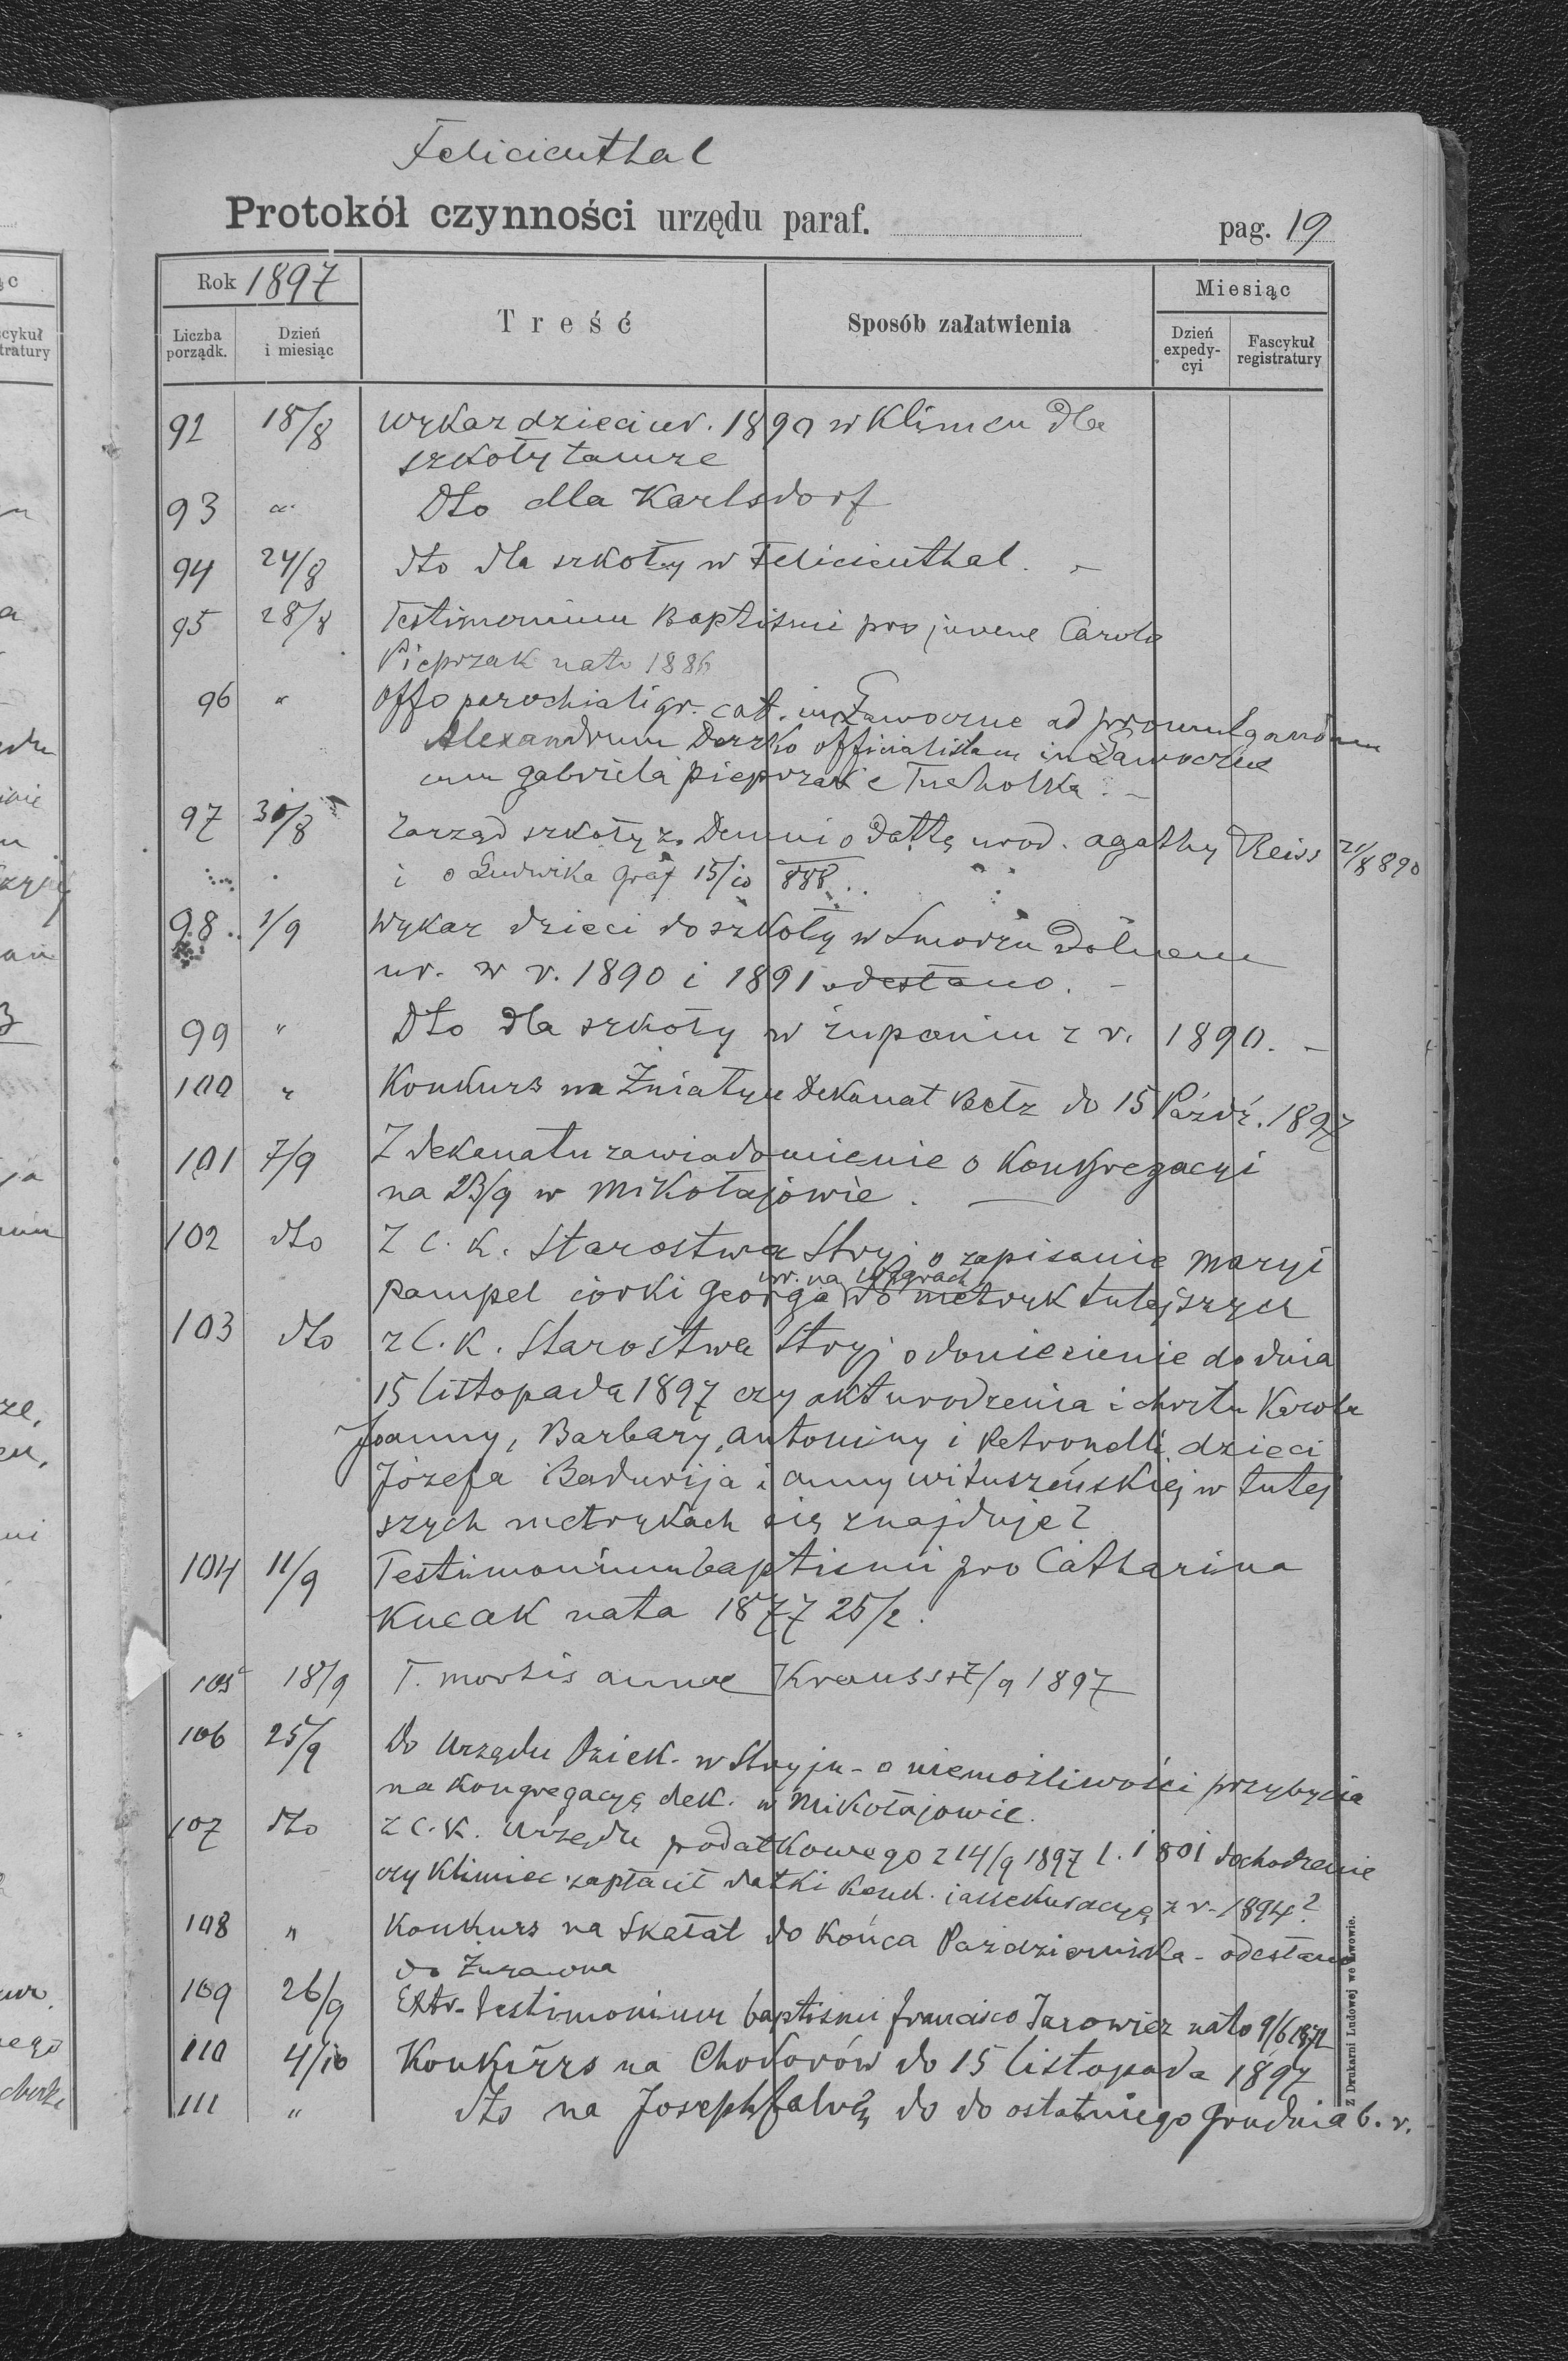 Felicienthal
Protokół czynności urzędu paraf.
pag. 19
Rok 1897
Miesiąc
Liczba porządk.
Dzień i miesiąc
Treść
Sposób załatwienia
Dzień expedycyi
Fascykuł registratury
92 18/8 Wykaz dzieci ur. 1890 w Klimcu dla
szkoły tamże
93 " Dto dla Karlsdorf
94 24/8 dto dla szkoły w Felicienthal. -
95 28/8 Testimonium Baptismi pro juvene Carolo
Pieprzak nato 1886
96 " Offo parochiali gr. cat. in Ławoczne ad promulgandum
Alexandrum Derzko officialistam in Ławoczne
cum Gabriela Pieprzak e Tucholka. -
97 30/8 Zarząd szkoły z Demni o datę urod. Agathy Reiss 21/8 890
i o Ludwika Graf 15/10 888
98 1/9 Wykaz dzieci do szkoły w Smorzu Dolnem
ur. w r. 1890 i 1891 odesłano. -
99 " Dto dla szkoły w Żupaniu z r. 1890. -
100 " Konkurs na Żniatyn Dekanat Bełz do 15 Paźdź. 1897
101 7/9 Z dekanatu zawiadomienie o Kongregacyi
na 23/9 w Mikołajowie.
102 dto Z C. K. Starostwa Stryj o zapisanie Maryi
ur. na Węgrach
Pampel córki Georga do metryk tutejszych
103 dto z C. K. Starostwa Stryj o doniesienie do dnia
15 listopada 1897 czy akt urodzenia i chrztu Karola
Joanny, Barbary, Antoniny i Petronelli dzieci
Józefa i Anny w tutej
szych metrykach się znajduje?
104 11/9 Testimonium baptismi pro Catharina
Kucak nata 1877 25/2.
105 18/9 T. mortis Annae Krauss +7/9 1897
106 25/9 Do Urzędu Dziek. w Stryju - o niemożliwości przybycia
na Kongregacyę dek. w Mikołajowie.
107 dto z C. K. Urzędu podatkowego z 14/9 1897 l. 1801 dochodzenie
czy Klimiec zapłacił datki Konk. i assekuracyę z r. 1894?
108 " Konkurs na Skałat do końca Października - odesłano
do Żurawna
109 26/9 Extr. testimonium baptismi Francisco Jarowicz nato 9/6 1872
110 4/10 Konkurs na Chodorów do 15 listopada 1897
111 " dto na Josephfalvę do do ostatniego Grudnia b. r.
Z Drukarni Ludowej we Lwowie.